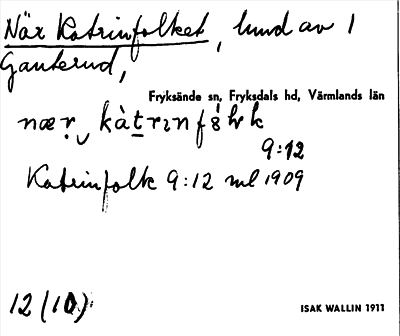 När Katrinfolket, lund av 1
Ganterud,
Fryksände sn, Fryksdals hd, Värmlands län
nær kàtrɪnf
9:12
Katrinfolk 9:12 ml 1909
12 (10)
ISAK WALLIN 1911